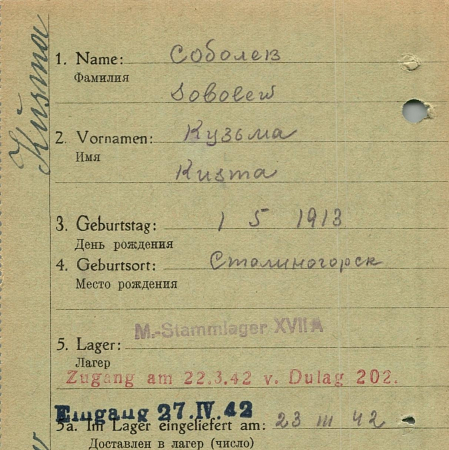 Kusma
1. Name: Соболев
Фамилия
Sobolew
2. Vornamen: Кузьма
Имя
Kusma
3. Geburtstag: 1 5 1913
День рождения
4. Geburtsort: Сталиногорск
Место рождения
M.-Stammlager XVII A
5. Lager:
Лагер
Zugang am 22.3.42 v. Dulag 202.
Eingang 27. IV. 42
5a. Im Lager eingeliefert am: 23 III 42
Доставлен в лагер (число)